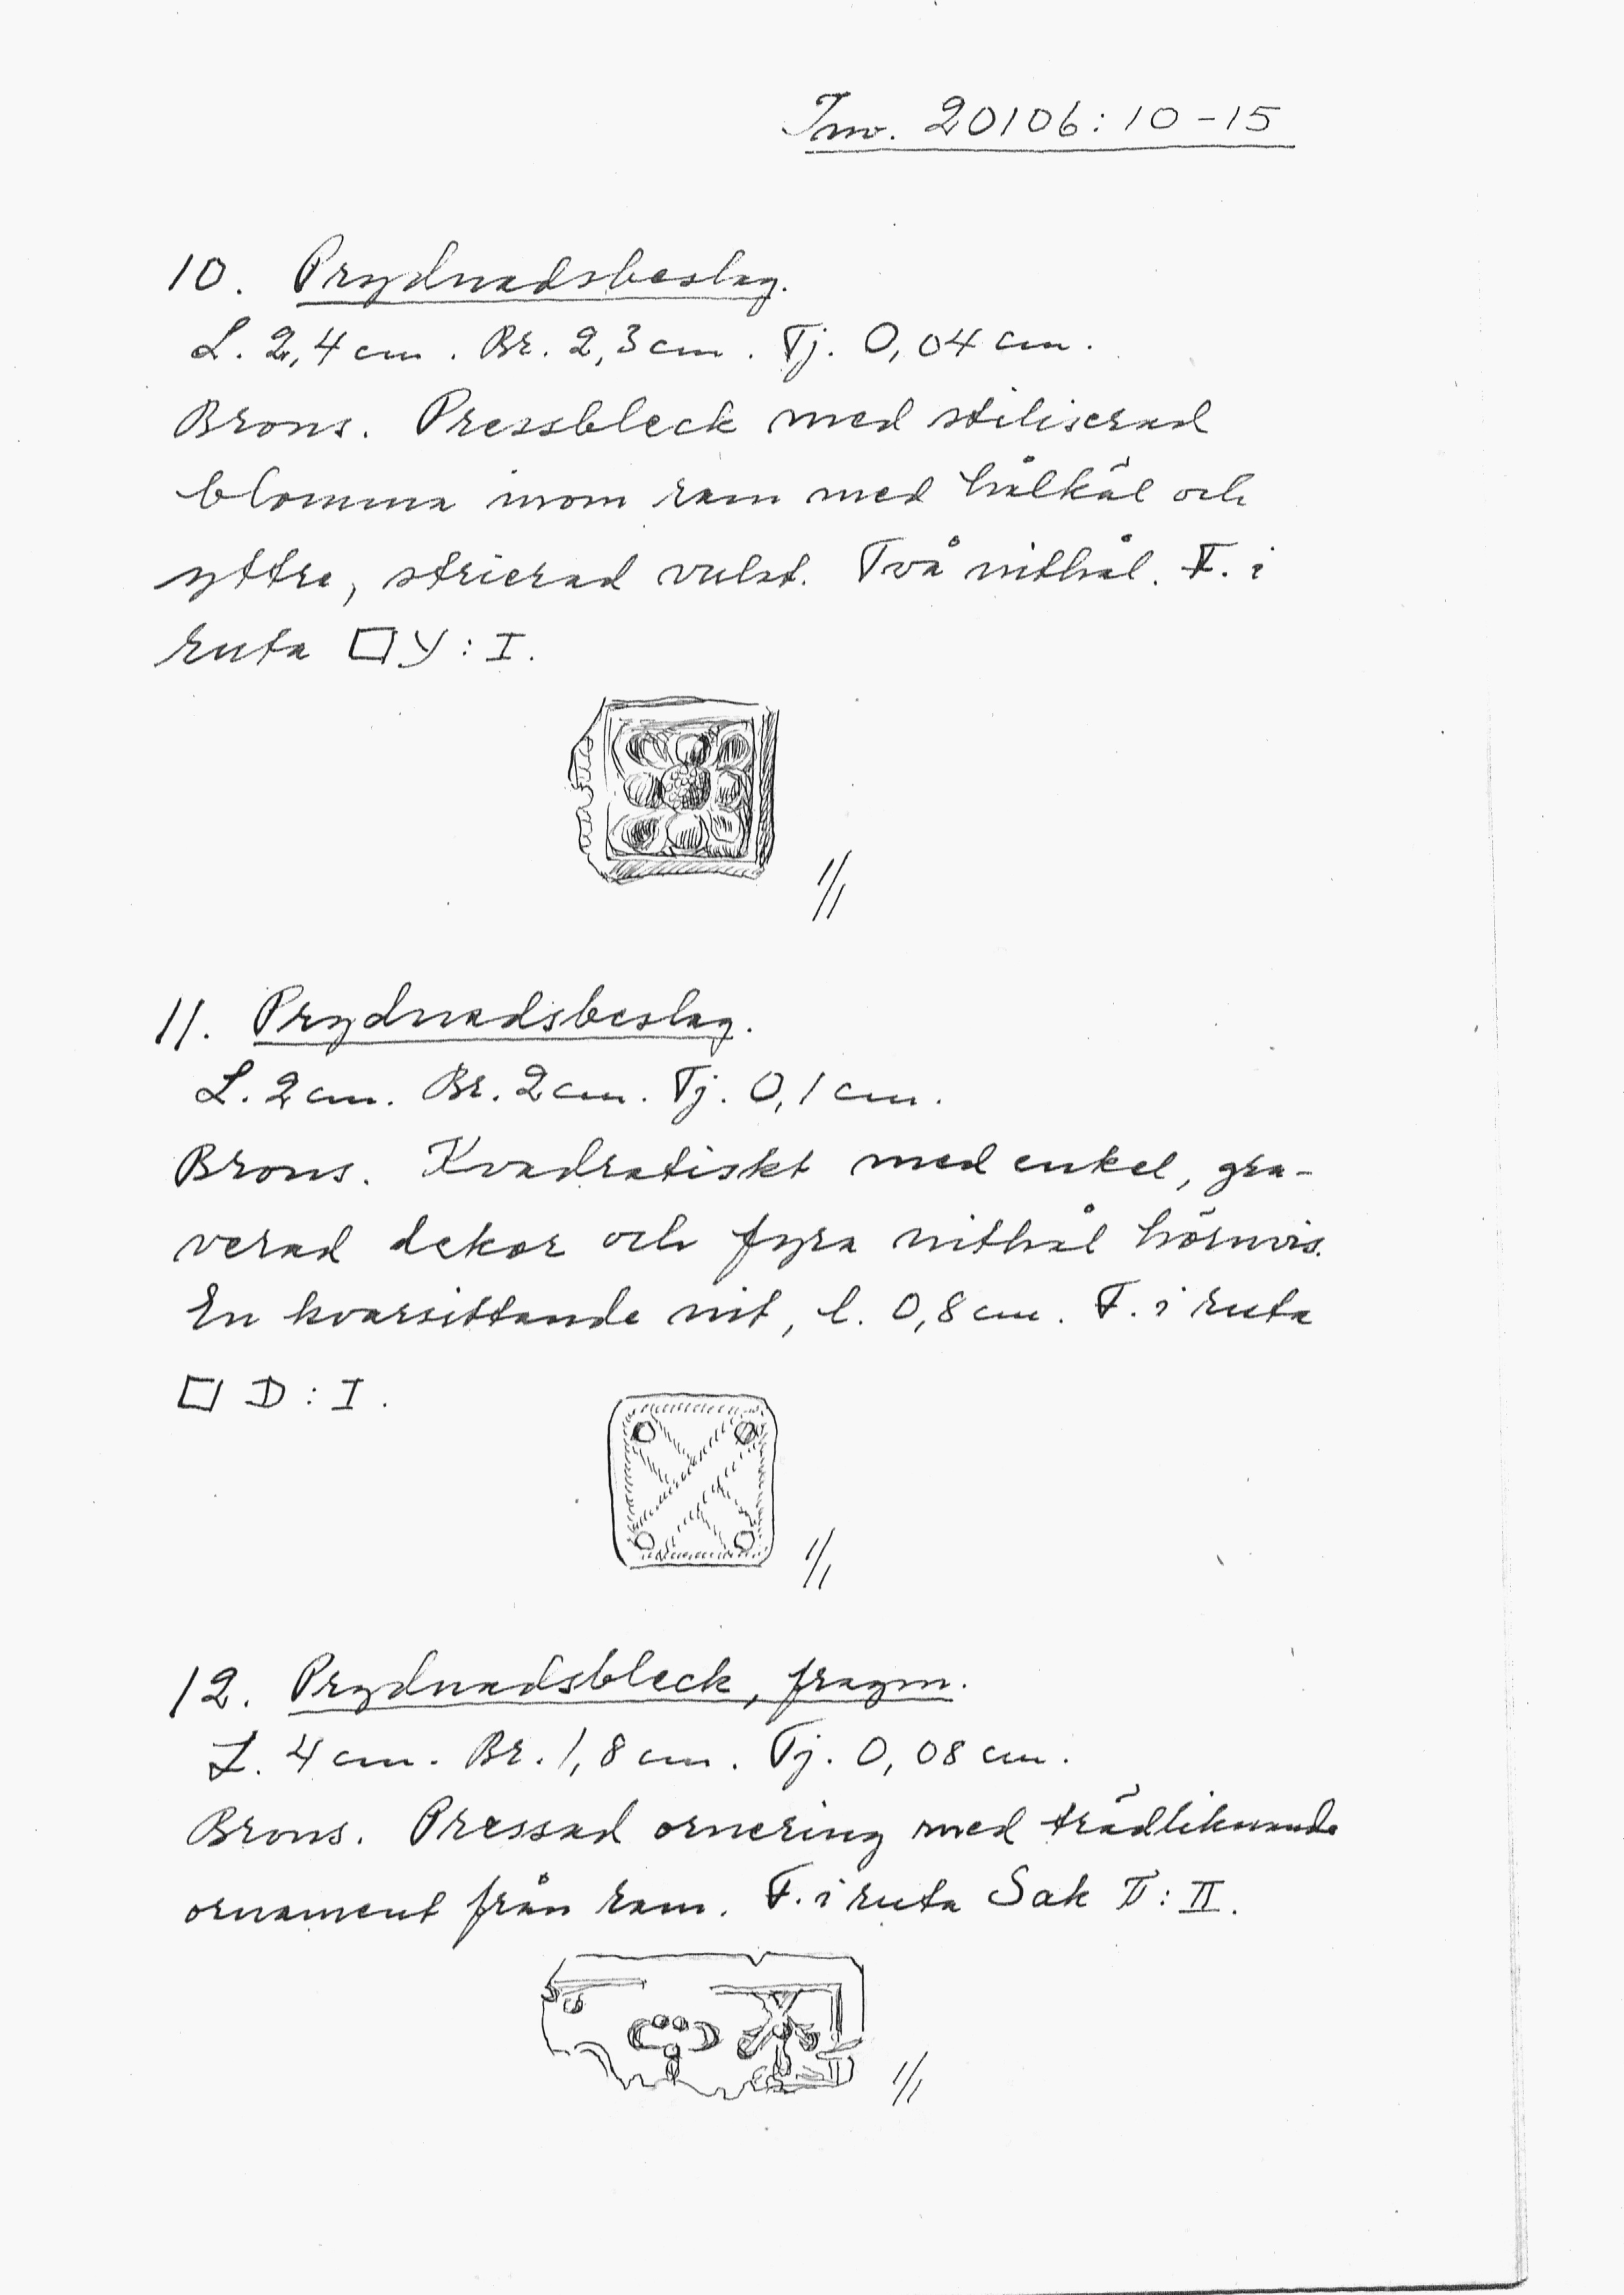 Inv. 20106:10-15
10. Prydnadsbeslag.
L. 2,4 cm. Br. 2,3 cm. Tj. 0,04 cm.
Brons. Pressbleck med stiliserad
blomma inom ram med hålkäl och
yttre, strierad vulst. Två nithål. F. i
ruta □ Y : I.
1/1
11. Prydnadsbeslag.
L. 2 cm. Br. 2 cm. Tj. 0,1 cm.
Brons. Kvadratiskt med enkel, gra-
verad dekor och fyra nithål hörnvis.
En kvarsittande nit, l. 0,8 cm. F. i ruta
□ D : I.
1/1
12. Prydnadsbleck, fragm.
L. 4 cm. Br. 1,8 cm. Tj. 0,08 cm.
Brons. Pressad ornering med trädliknande
ornament från ram. F. i ruta Sak II : II.
1/1